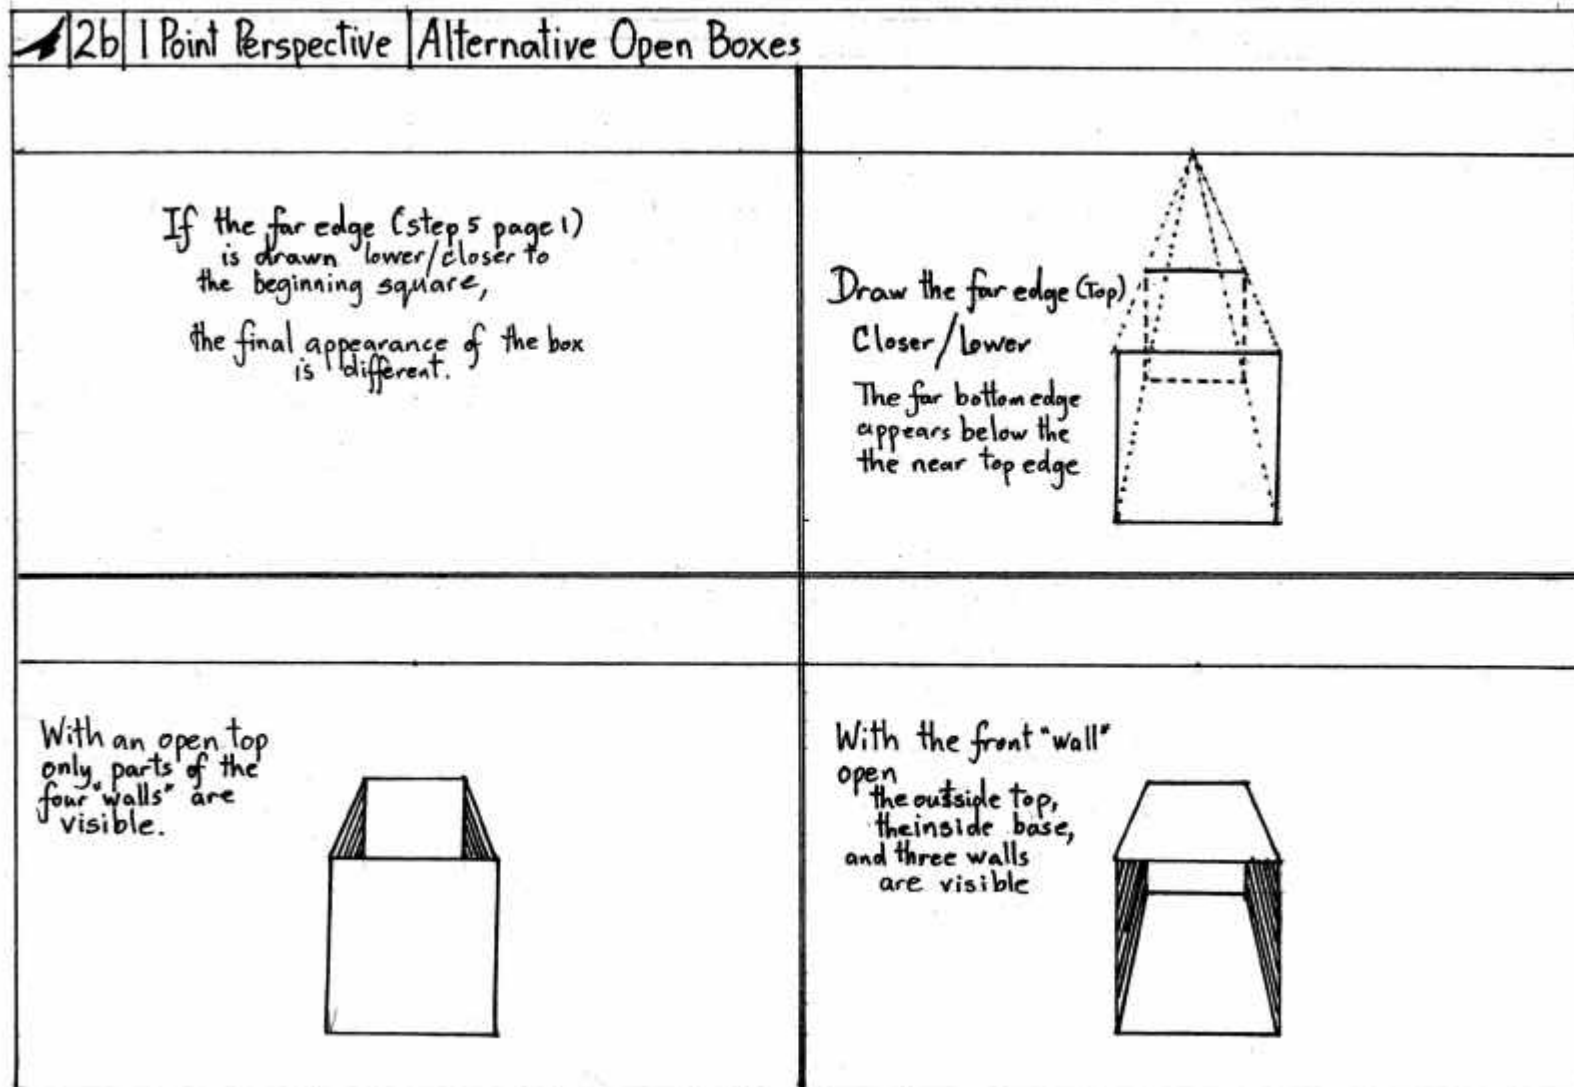 2b 1 Point Perspective Alternative Open Boxes
If the far edge (step 5 page 1)
is drawn lower/closer to
the beginning square,
the final appearance of the box
is different.
Draw the far edge (Top)
Closer/Lower
The far bottom edge
appears below the
the near top edge
With an open top
only parts of the
four "walls" are
visible.
With the front "wall"
open
the outside top,
the inside base,
and three walls
are visible